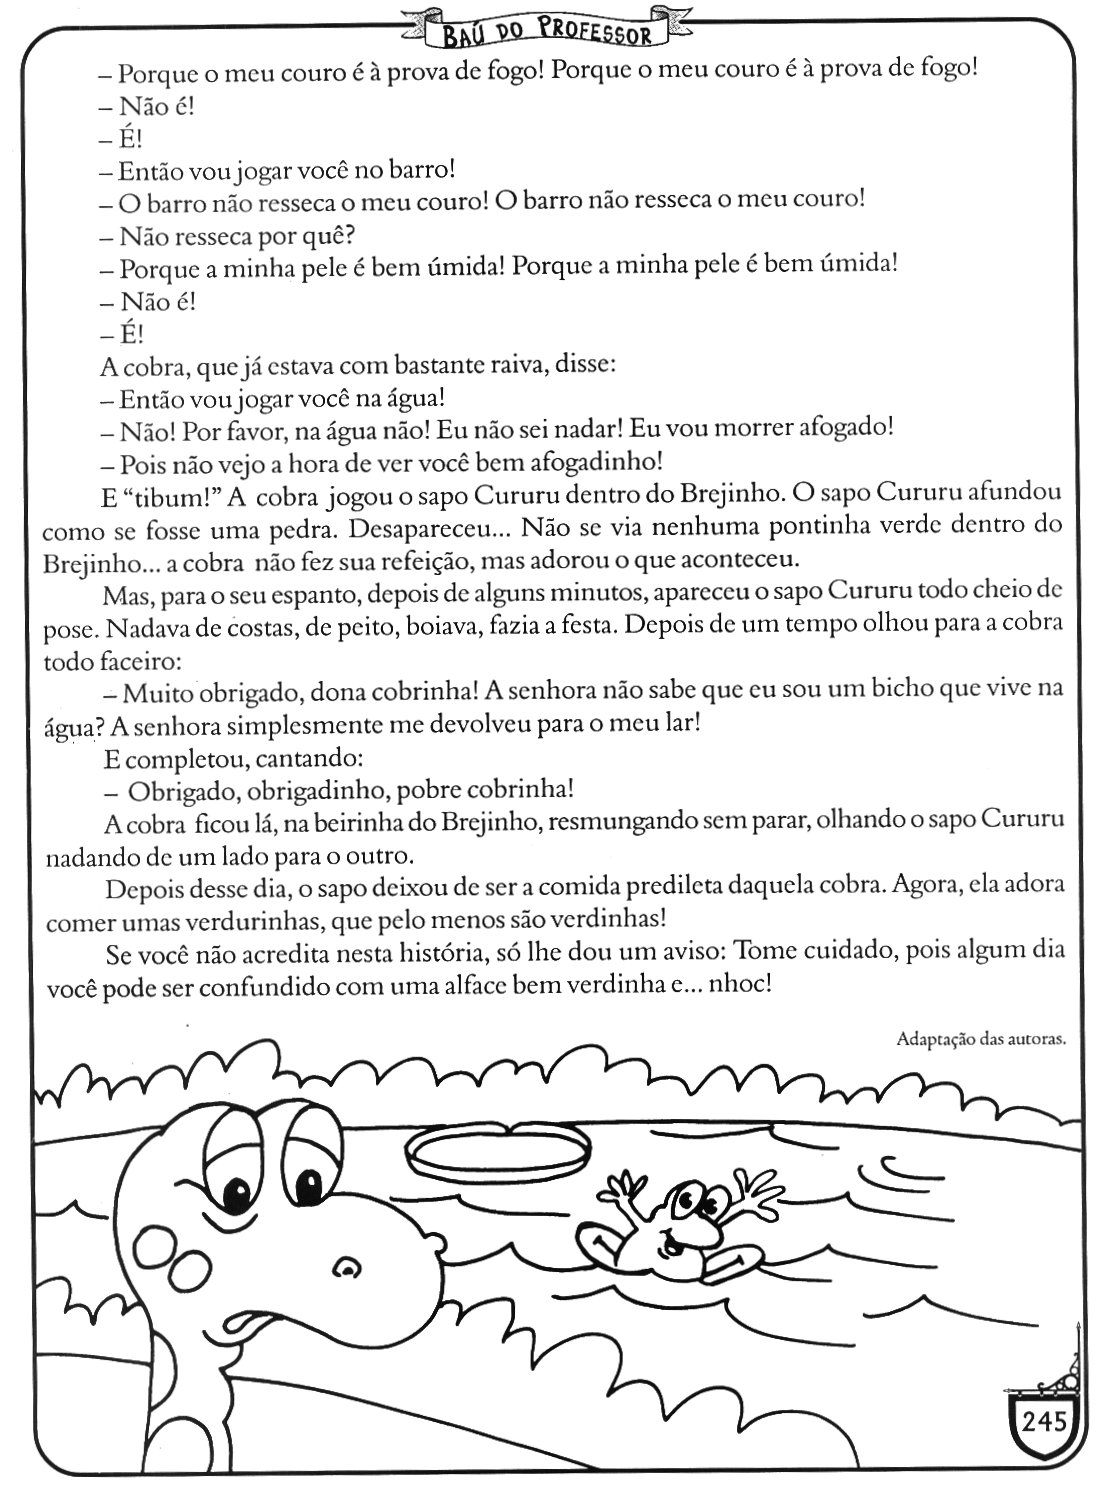 BAÚ DO PROFESSOR
– Porque o meu couro é à prova de fogo! Porque o meu couro é à prova de fogo!
– Não é!
– É!
– Então vou jogar você no barro!
– O barro não resseca o meu couro! O barro não resseca o meu couro!
– Não resseca por quê?
– Porque a minha pele é bem úmida! Porque a minha pele é bem úmida!
– Não é!
– É!
A cobra, que já estava com bastante raiva, disse:
– Então vou jogar você na água!
– Não! Por favor, na água não! Eu não sei nadar! Eu vou morrer afogado!
– Pois não vejo a hora de ver você bem afogadinho!
E “tibum!” A cobra jogou o sapo Cururu dentro do Brejinho. O sapo Cururu afundou
como se fosse uma pedra. Desapareceu... Não se via nenhuma pontinha verde dentro do
Brejinho... a cobra não fez sua refeição, mas adorou o que aconteceu.
Mas, para o seu espanto, depois de alguns minutos, apareceu o sapo Cururu todo cheio de
pose. Nadava de costas, de peito, boiava, fazia a festa. Depois de um tempo olhou para a cobra
todo faceiro:
– Muito obrigado, dona cobrinha! A senhora não sabe que eu sou um bicho que vive na
água? A senhora simplesmente me devolveu para o meu lar!
E completou, cantando:
– Obrigado, obrigadinho, pobre cobrinha!
A cobra ficou lá, na beirinha do Brejinho, resmungando sem parar, olhando o sapo Cururu
nadando de um lado para o outro.
Depois desse dia, o sapo deixou de ser a comida predileta daquela cobra. Agora, ela adora
comer umas verdurinhas, que pelo menos são verdinhas!
Se você não acredita nesta história, só lhe dou um aviso: Tome cuidado, pois algum dia
você pode ser confundido com uma alface bem verdinha e... nhoc!
Adaptação das autoras.
245